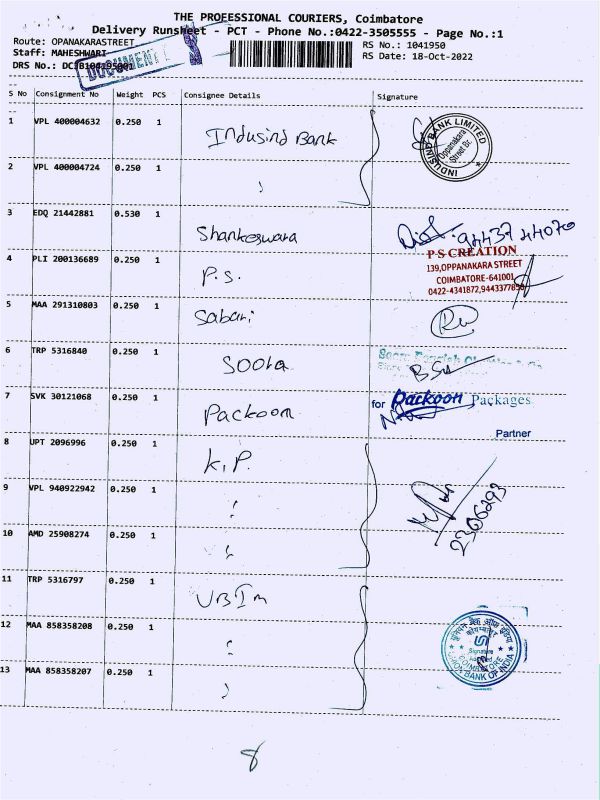 THE PROFESSIONAL COURIERS, Coimbatore
Delivery Runsheet - PCT - Phone No.:0422-3505555 - Page No.:1
Route: OPANAKARASTREET
RS No.: 1041950
Staff: MAHESHWARI
RS Date: 18-Oct-2022
DRS No.:
DOCUMENT
S No Consignment No Weight PCS Consignee Details Signature
1 VPL 400004632 0.250 1 Indusind Bank
INDUSIND BANK LIMITED
Oppanakara
Street Br.
2 VPL 400004724 0.250 1 "
3 EDQ 21442881 0.530 1 Shankeswara
94437 44070
4 PLI 200136689 0.250 1 P.S.
P S CREATION
139,OPPANAKARA STREET
COIMBATORE-641001
0422-4341872,
5 MAA 291310803 0.250 1 Sabari
6 TRP 5316840 0.250 1 Soora
7 SVK 30121068 0.250 1 Packoon
for Packoon Packages
Partner
8 UPT 2096996 0.250 1 K.P.
9 VPL 940922942 0.250 1 "
2366293
10 AMD 25908274 0.250 1 "
11 TRP 5316797 0.250 1 UBIm
12 MAA 858358208 0.250 1 "
यूनियन बैंक ऑफ इंडिया
कोयम्बत्तूर
Signature
COIMBATORE
UNION BANK OF INDIA
13 MAA 858358207 0.250 1 "
8